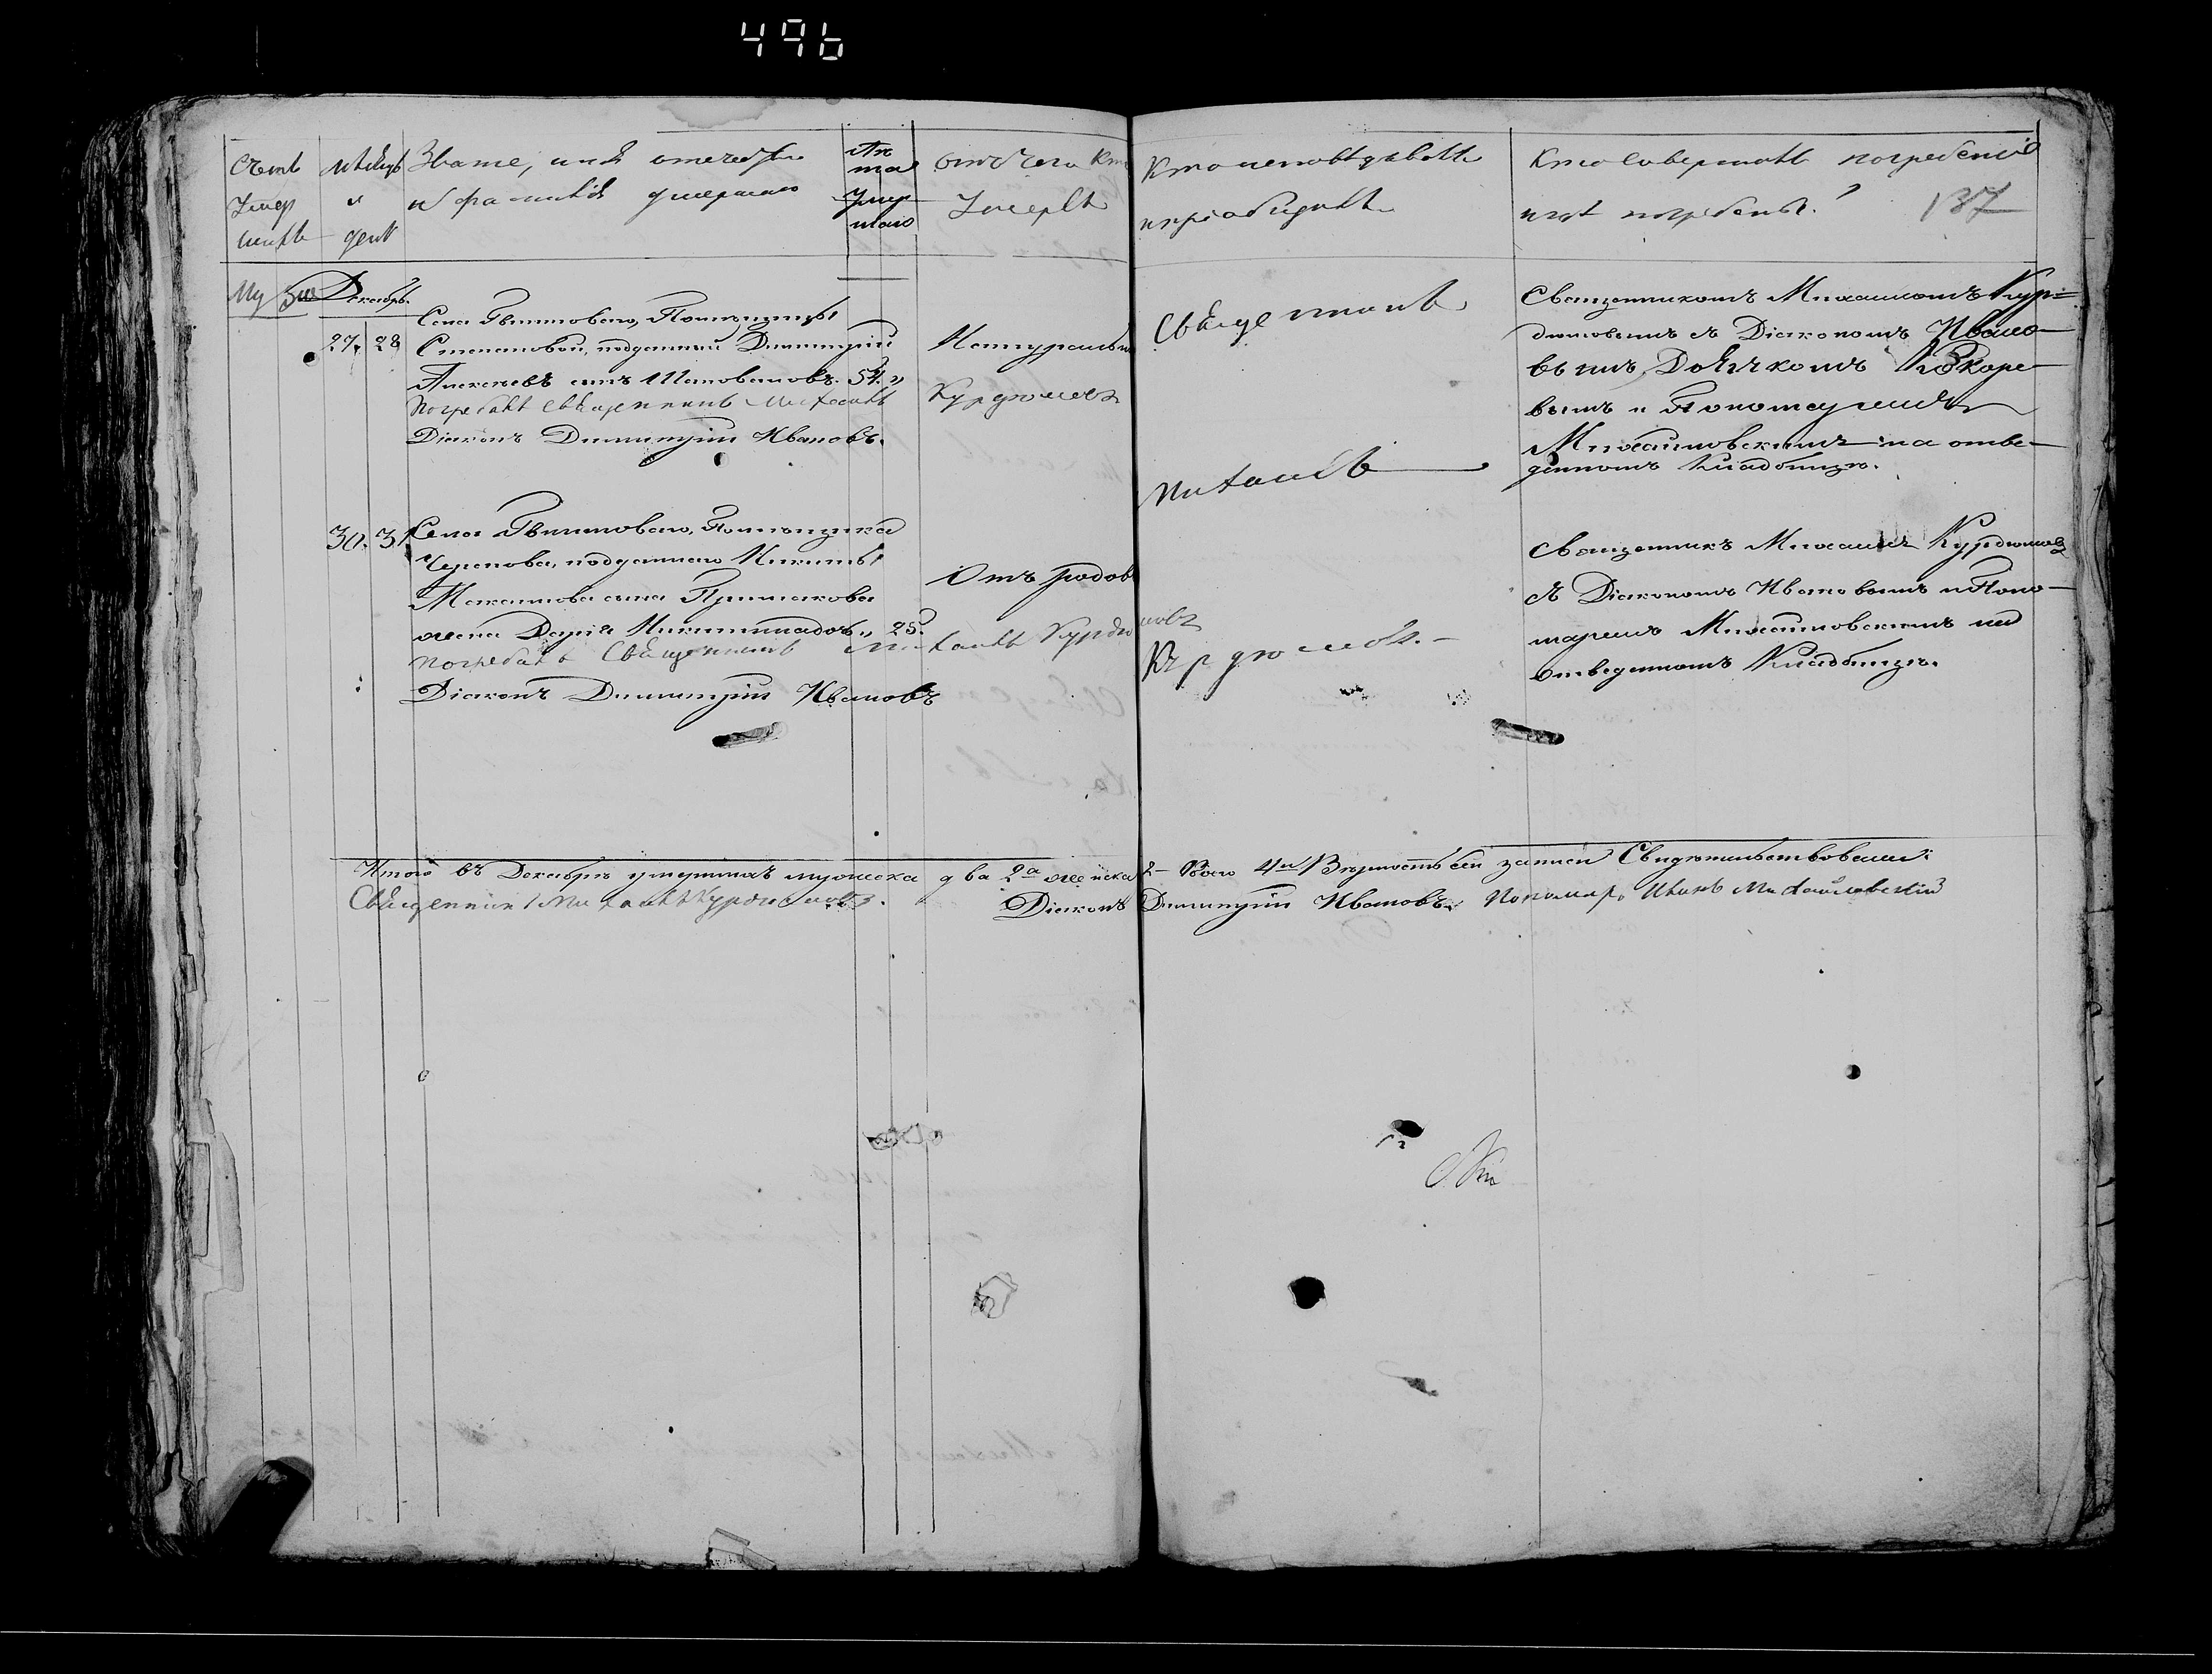 496
Счетъ
Умер
шихъ
Мѣсяцъ
и
день
Званіе, имя отечество
и фамилія умершаго
Лѣ
та
Умер
шаго
отъ чего
Умеръ
Кто исповѣдывалъ
и пріобщилъ
Кто совершалъ погребеніе
и гдѣ погребены?
137
Му Же Декабрь
27. 28
Села Помѣщицы
Степановой, подданный Димитрій
Алексѣевъ сынъ 54.
погребалъ Священникъ Михаилъ
Діаконъ Димитрій Ивановъ.
Курдюмовъ
Священникъ
Священникомъ Михаиломъ Кур=
дюмовымъ съ Діакономъ Ивано-
вымъ, Дьячкомъ
вымъ и Пономаремъ
Михайловскимъ на отве-
денномъ Кладбищѣ.
Михаилъ
30. 31
Села Помѣщика
подданнаго Никиты
Максимова сына
жена Дарія 25.
погребалъ Священникъ Михаилъ Курдюмовъ
Діаконъ Димитрій Ивановъ
Отъ родов
Курдюмовъ.
Священникъ Михаилъ Курдюмовъ
съ Діакономъ Ивановымъ и Поно-
маремъ Михайловскимъ на
отведенномъ Кладбищѣ.
Итого въ Декабрѣ умершихъ мужеска два 2а женска 2 - Всего 4 Вѣрность сей записи Свидѣтельствовали:
Священникъ Михаилъ Курдюмовъ. Діаконъ Димитрій Ивановъ. Пономарь Иванъ Михайловскій